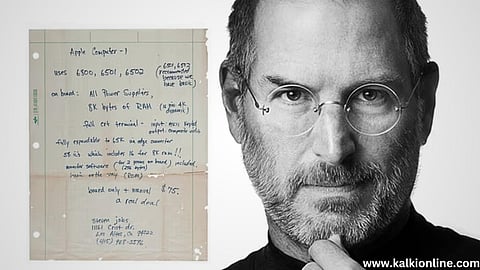 Apple Computer - 1
uses 6800, 6501, 6502
(recommended
because we
have basic)
on board: All Power Supplies,
8K bytes of RAM (16 pin 4K
dynamic)
full crt terminal - input: ASCII Keybd
output: composite video
fully expandable to 65K via edge connector
58 IC's which includes 16 for 8K ram!!
monitor software (on board) included
(256 bytes)
basic on the way (ROM)
board only + manual $75.
a real deal
steven jobs
11161 Crist dr.
Los Altos, Ca 94022
(415) 968-3596
www.kalkionline.com